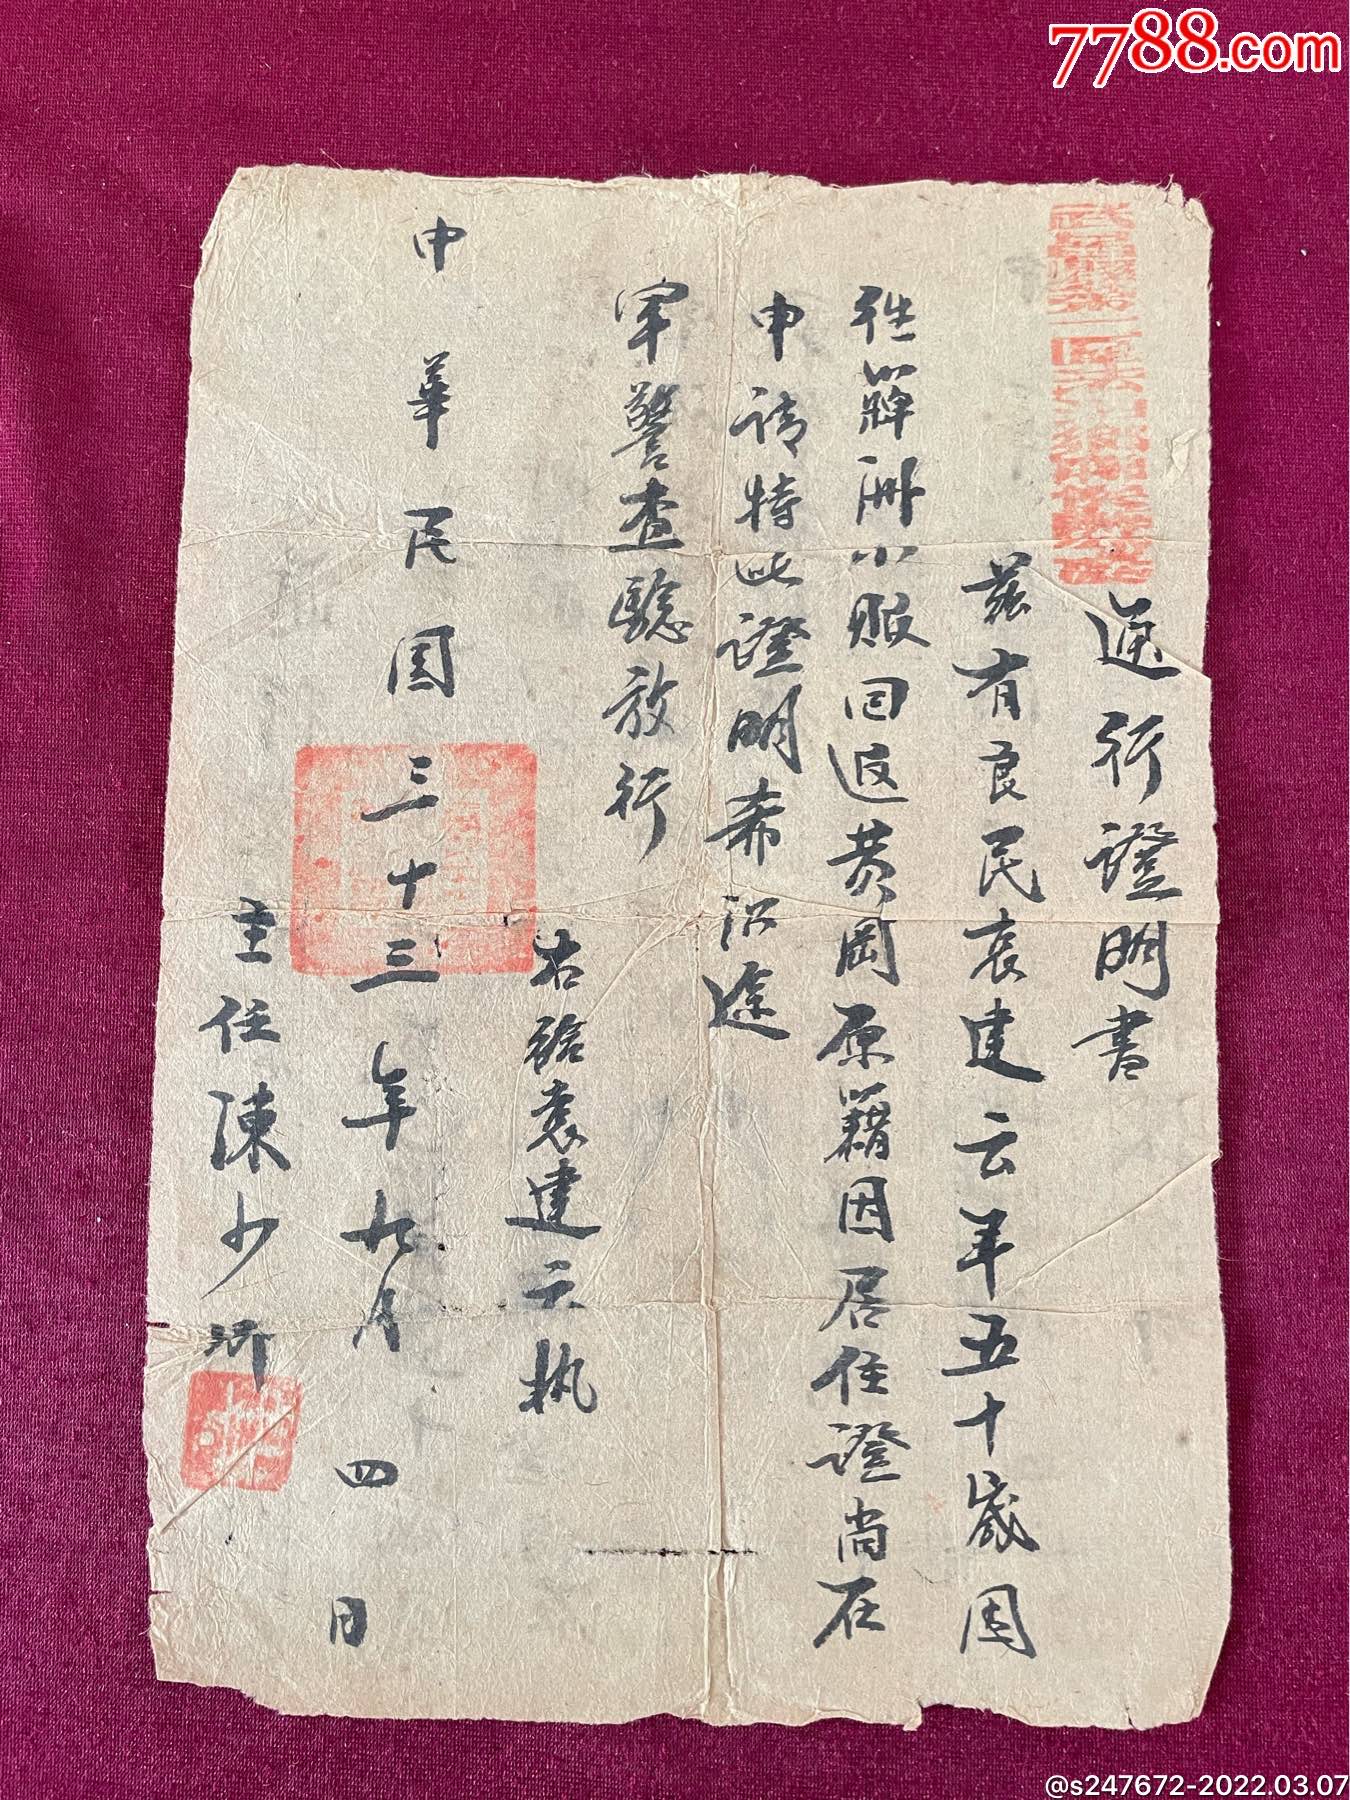 7788.com
通行證明書
茲有良民袁建云年五十歲因
往簰洲小販回返黄岡原籍因居住證尚在
申请特此證明希沿途
军警查驗放行
右给袁建云执
中華民国三十三年九月四日
主任陳少卿
@s247672-2022.03.07